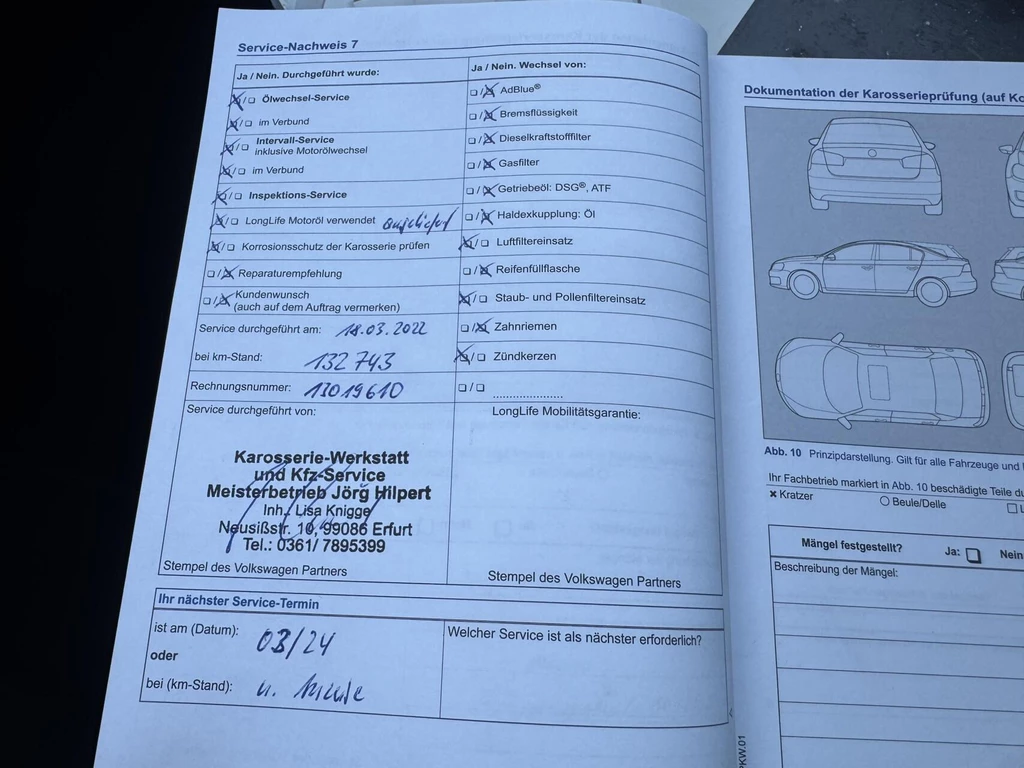 Service-Nachweis 7
Ja / Nein. Durchgeführt wurde:
☒/☐ Ölwechsel-Service
☒/☐ im Verbund
☒/☐ Intervall-Service
inklusive Motorölwechsel
☒/☐ im Verbund
☒/☐ Inspektions-Service
☒/☐ LongLife Motoröl verwendet
☒/☐ Korrosionsschutz der Karosserie prüfen
☐/☒ Reparaturempfehlung
☐/☒ Kundenwunsch
(auch auf dem Auftrag vermerken)
Service durchgeführt am: 18.03.2022
bei km-Stand: 132 743
Rechnungsnummer: 13019610
Service durchgeführt von:
Karosserie-Werkstatt
und Kfz-Service
Meisterbetrieb Jörg Hilpert
Inh. Lisa Knigge
Neusißstr. 10, 99086 Erfurt
Tel.: 0361/ 7895399
Stempel des Volkswagen Partners
Ja / Nein. Wechsel von:
☐/☒ AdBlue®
☐/☒ Bremsflüssigkeit
☐/☒ Dieselkraftstofffilter
☐/☒ Gasfilter
☐/☒ Getriebeöl: DSG®, ATF
☐/☒ Haldexkupplung: Öl
☒/☐ Luftfiltereinsatz
☐/☒ Reifenfüllflasche
☒/☐ Staub- und Pollenfiltereinsatz
☐/☒ Zahnriemen
☒/☐ Zündkerzen
☐/☐ ......................
LongLife Mobilitätsgarantie:
Stempel des Volkswagen Partners
Ihr nächster Service-Termin
ist am (Datum): 03/24
oder
bei (km-Stand): n.
Welcher Service ist als nächster erforderlich?
Dokumentation der Karosserieprüfung (auf
Abb. 10 Prinzipdarstellung. Gilt für alle Fahrzeuge und
Ihr Fachbetrieb markiert in Abb. 10 beschädigte Teile
× Kratzer
○ Beule/Delle
☐
Mängel festgestellt? Ja: ☐ Nein
Beschreibung der Mängel:
PKW.01